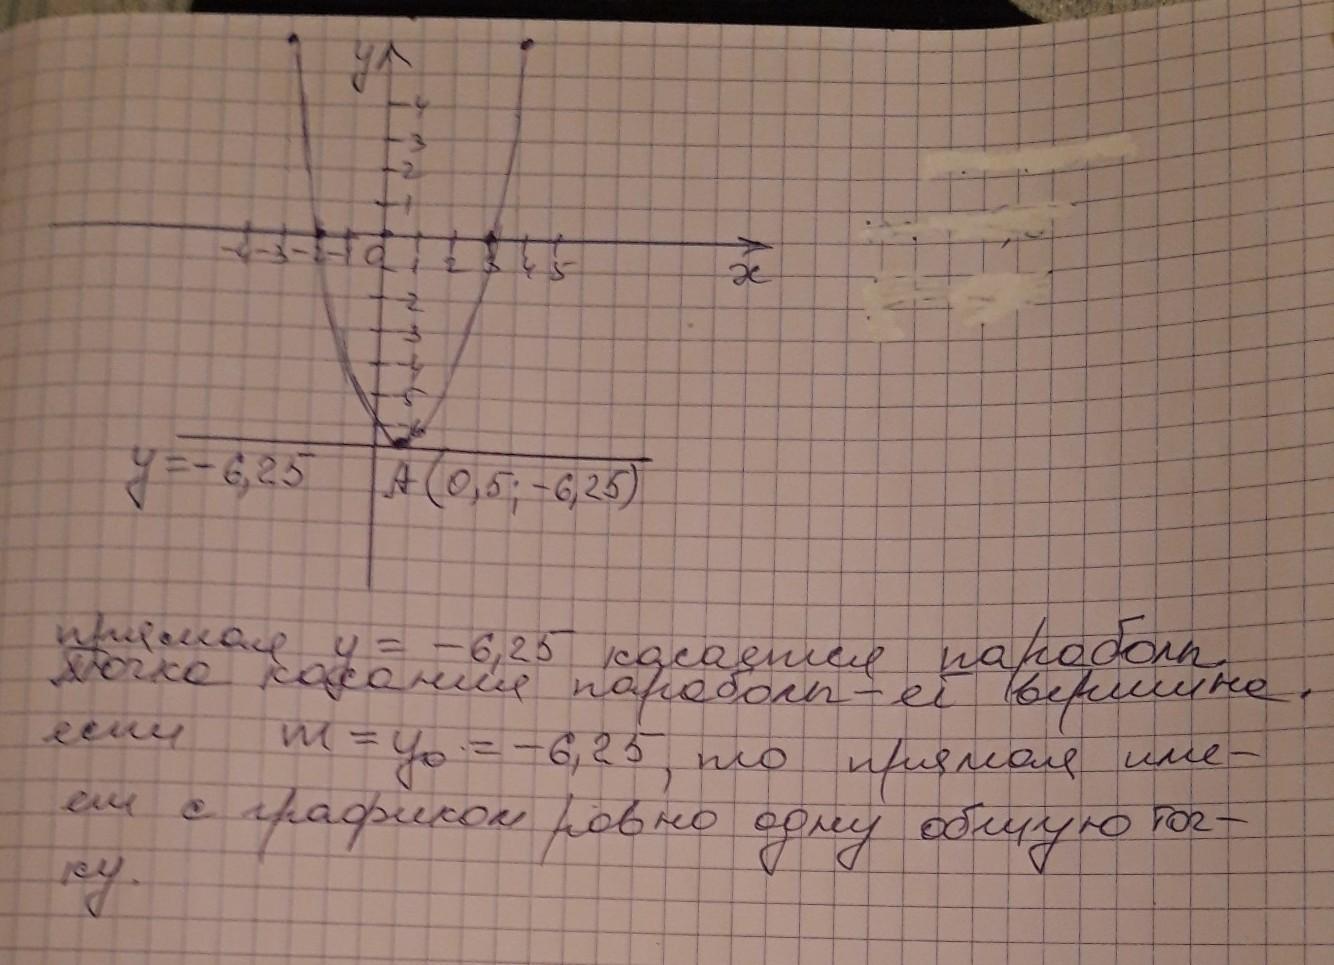 у
4
3
2
1
-4 -3 -2 -1 0 1 2 3 4 5
х
-2
-3
-4
-5
-6
у = -6,25 А (0,5; -6,25)
прямая у = -6,25 касается параболы.
точка касания параболы - её вершина.
если m = y₀ = -6,25, то прямая име-
ет с графиком ровно одну общую точ-
ку.